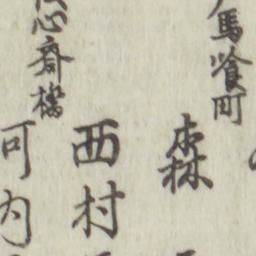 馬喰町
森
西村
心斎橋
河内